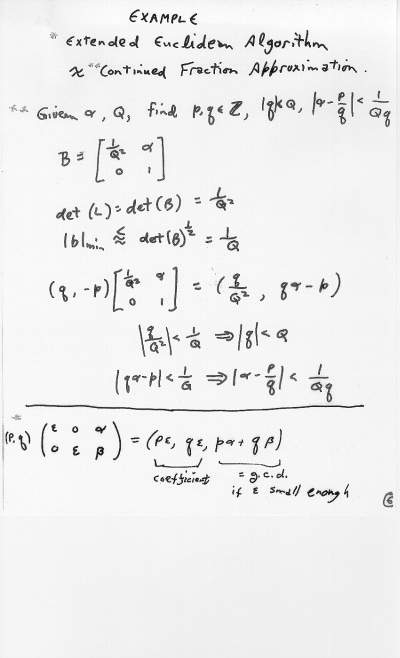 EXAMPLE
* Extended Euclidean Algorithm
x ** Continued Fraction Approximation.
** Given α, Q, find p,q ∈ Z, |q|<Q, |α - p/q| < 1/Qq
B = [1/Q² α
0 1]
det (L) = det (B) = 1/Q²
|b|min ≲ det(B)^1/2 = 1/Q
(q, -p) [1/Q² α
0 1] = (q/Q², qα-p)
|q/Q²| < 1/Q ⇒ |q| < Q
|qα-p| < 1/Q ⇒ |α - p/q| < 1/Qq
*
(p,q) (ε 0 α
0 ε β) = (pε, qε, pα + qβ)
coefficient = g.c.d.
if ε small enough
6